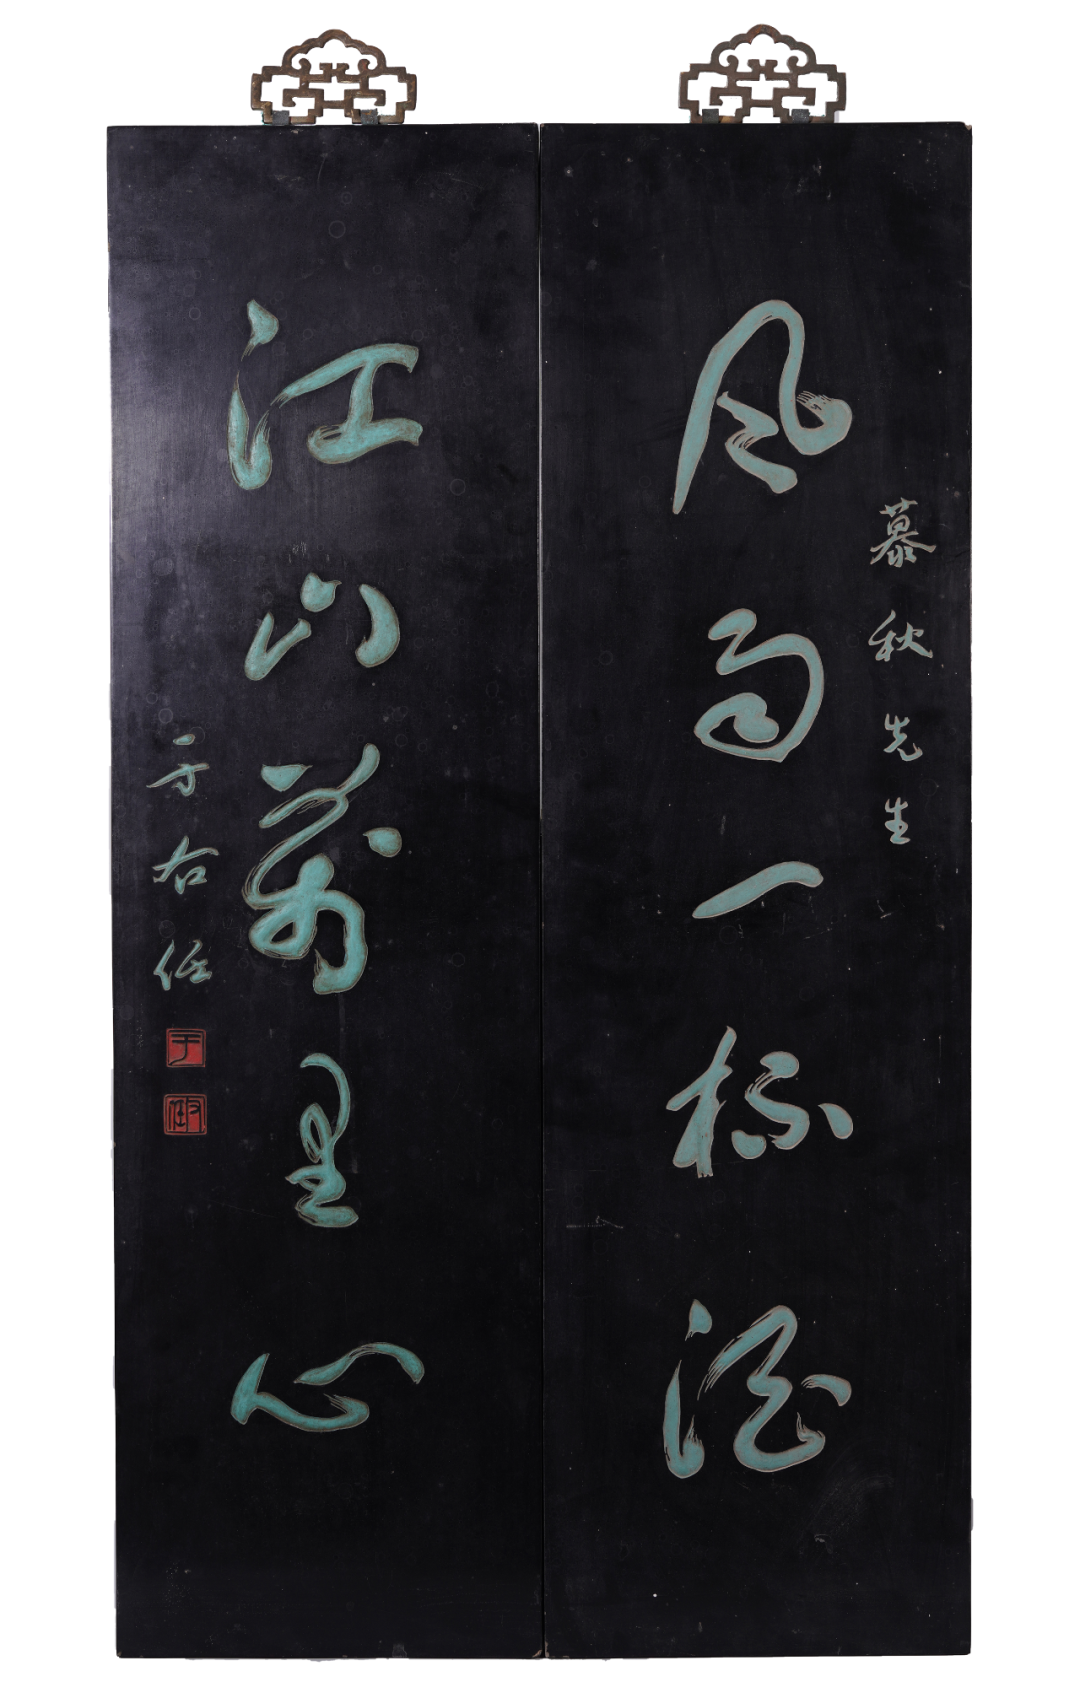 慕秋先生
风雨一杯酒
江山万里心
于右任
于
右任